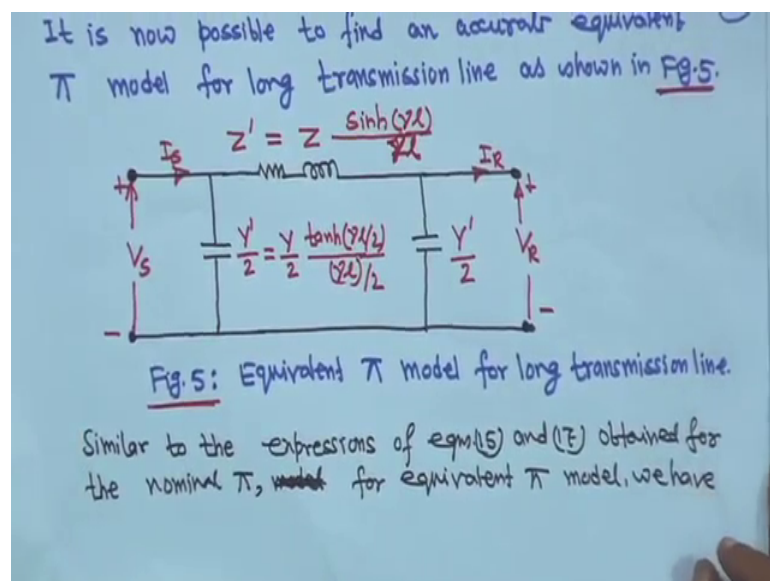 It is now possible to find an accurate equivalent
π model for long transmission line as shown in Fig.5.
Z' = Z sinh(γl)/γl
Is
IR
+
+
Vs
Y'/2 = Y/2 tanh(γl/2)/(γl)/2
Y'/2
VR
-
-
Fig.5: Equivalent π model for long transmission line.
Similar to the expressions of eqn.(15) and (17) obtained for
the nominal π, for equivalent π model, we have